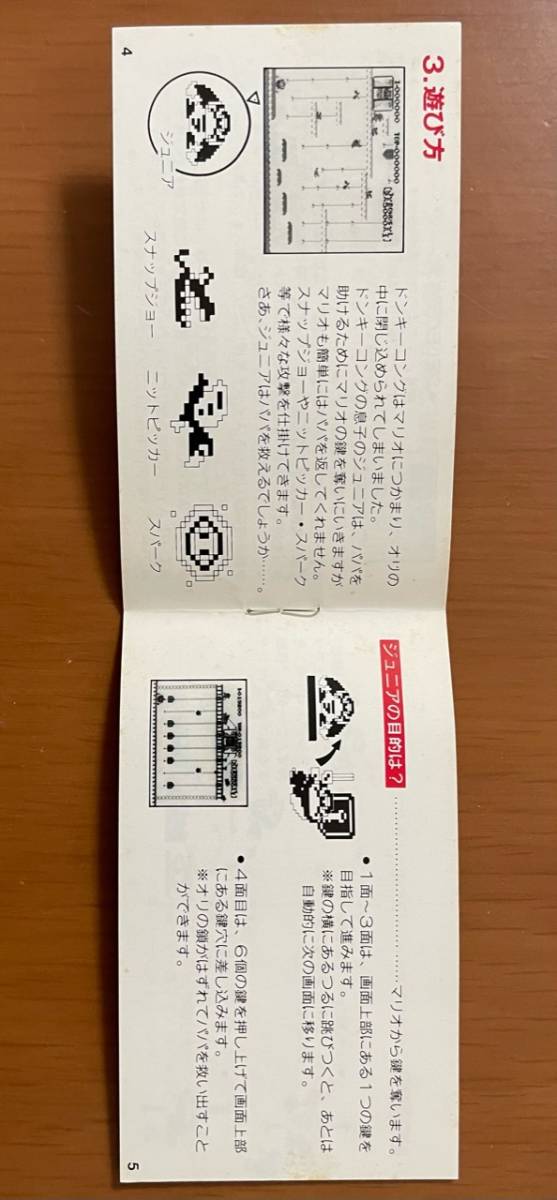 3.遊び方
I-000000 TOP-000000
ドンキーコングはマリオにつかまり、オリの
中に閉じ込められてしまいました。
ドンキーコングの息子のジュニアは、パパを
助けるためにマリオの鍵を奪いにいきますが
マリオも簡単にはパパを返してくれません。
スナップジョーやニットピッカー・スパーク
等で様々な攻撃を仕掛けてきます。
さあ、ジュニアはパパを救えるでしょうか……。
ジュニア
スナップジョー
ニットピッカー
スパーク
4
ジュニアの目的は?……………………マリオから鍵を奪います。
●1面~3面は、画面上部にある1つの鍵を
目指して進みます。
※鍵の横にあるつるに跳びつくと、あとは
自動的に次の画面に移ります。
●4面目は、6個の鍵を押し上げて画面上部
にある鍵穴に差し込みます。
※オリの鎖がはずれてパパを救い出すこと
ができます。
5